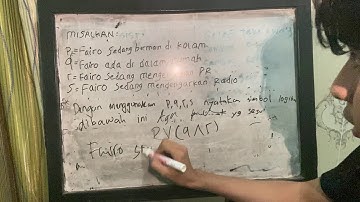 MISALKAN:
P = Fairo Sedang bermain di kolam
q = Fairo ada di dalam
r = Fairo Sedang PR
S = Fairo Sedang mengerjakan Radio
Dengan menggunakan P, q, r, s nyatakan simbol logika
dibawah ini yg
P V (q ∧ r)
Fairo se